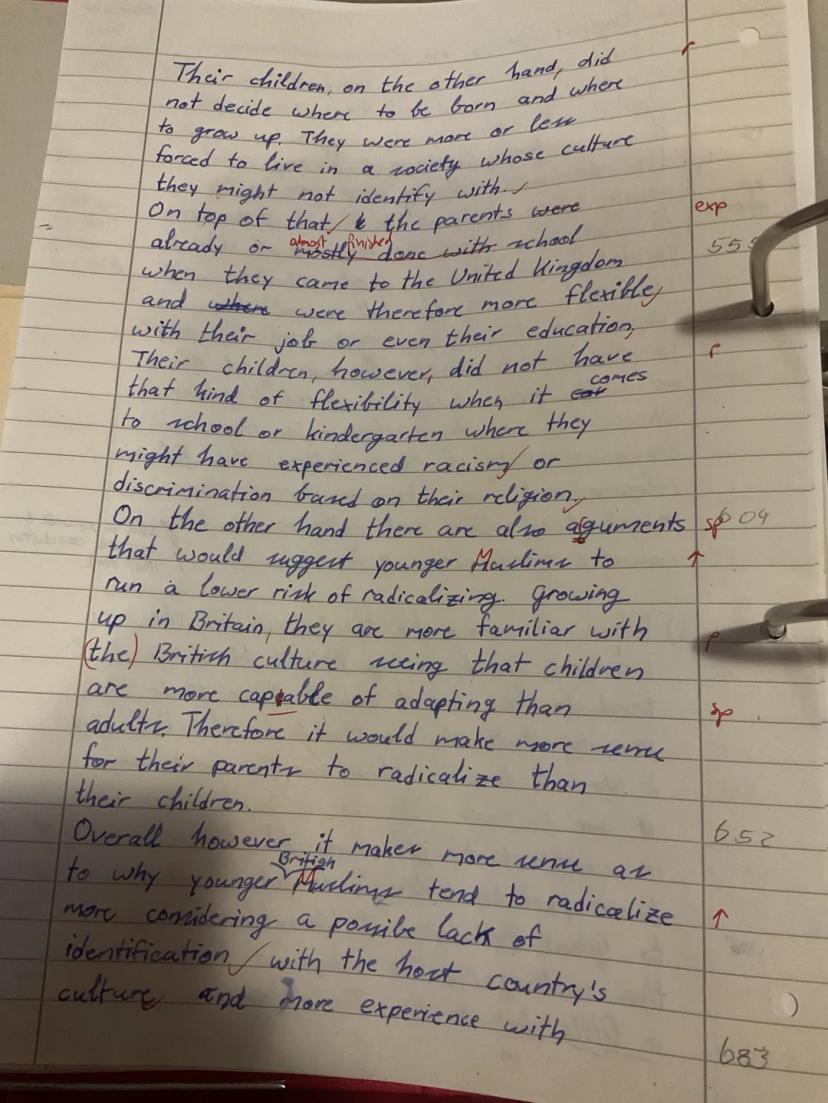 Their children, on the other hand, did
not decide where to be born and where
to grow up. They were more or less
forced to live in a society whose culture
they might not identify with.
On top of that the parents were exp
already or mostly done with school 555
almost finished
when they came to the United Kingdom
and where were therefore more flexible
with their job or even their education,
Their children, however, did not have
that kind of flexibility when it comes
to school or kindergarten where they
might have experienced racism or
discrimination based on their religion.
On the other hand there are also aguments sp 604
that would suggest younger Muslims to
run a lower risk of radicalizing. Growing
up in Britain, they are more familiar with
(the) British culture seeing that children
are more capable of adapting than sp
adults. Therefore it would make more sense
for their parents to radicalize than
their children.
652
Overall however it makes more sense as
to why younger British Muslims tend to radicalize
more considering a possibe lack of
identification with the host country's
culture and more experience with
683